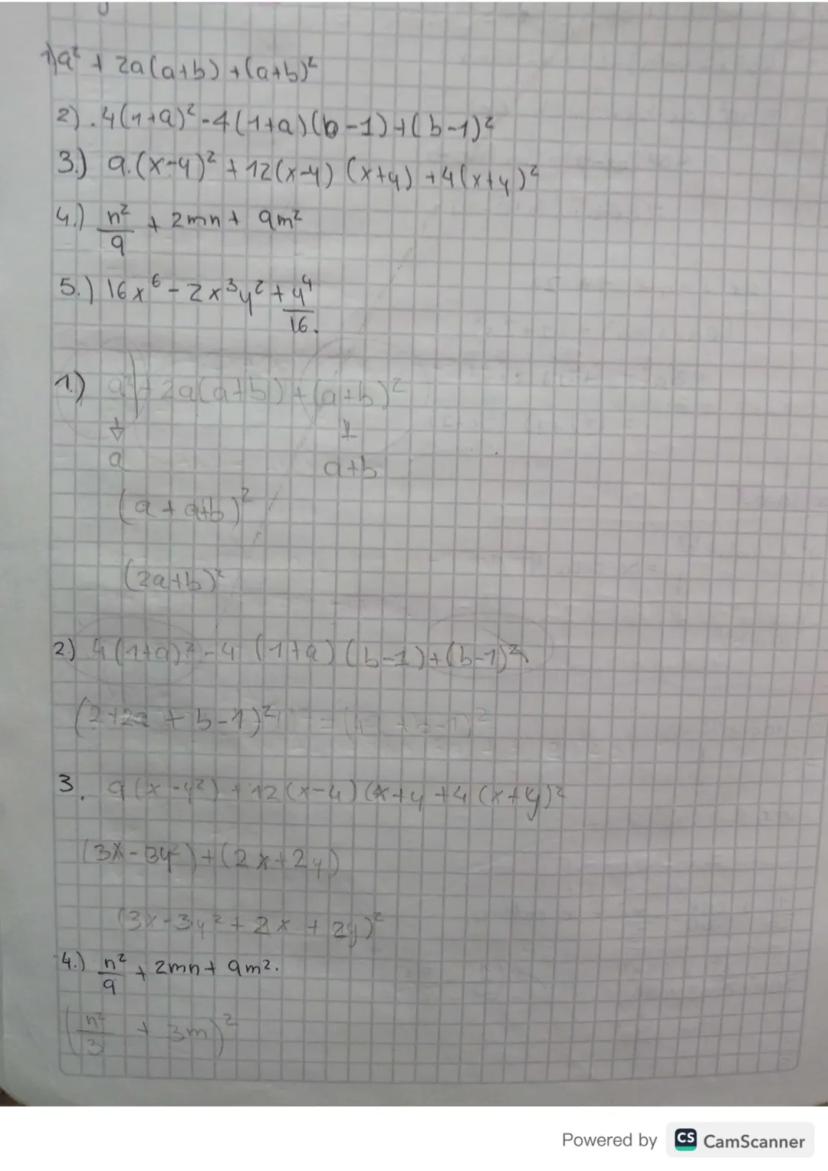 1) a² + 2a(a+b) + (a+b)²
2). 4(1+a)² - 4(1+a)(b-1)+(b-1)²
3.) 9.(x-y)² + 12(x-y) (x+y) + 4(x+y)²
4.) n²/9 + 2mn + 9m²
5.) 16x⁶ - 2x³y² + y⁴/16.
1.) a² + 2a(a+b) + (a+b)²
a a+b
(a + a+b)²
(2a+b)²
2) 4(1+a)² - 4 (1+a) (b-1)+(b-1)²
(2+2a + b-1)²
3. 9(x-y²) + 12(x-y) (x+y +4 (x+y)²
(3x-3y²)+(2x+2y)
(3x-3y²+2x+2y)²
4.) n²/9 + 2mn + 9m².
(n²/3 + 3m)²
Powered by CS CamScanner